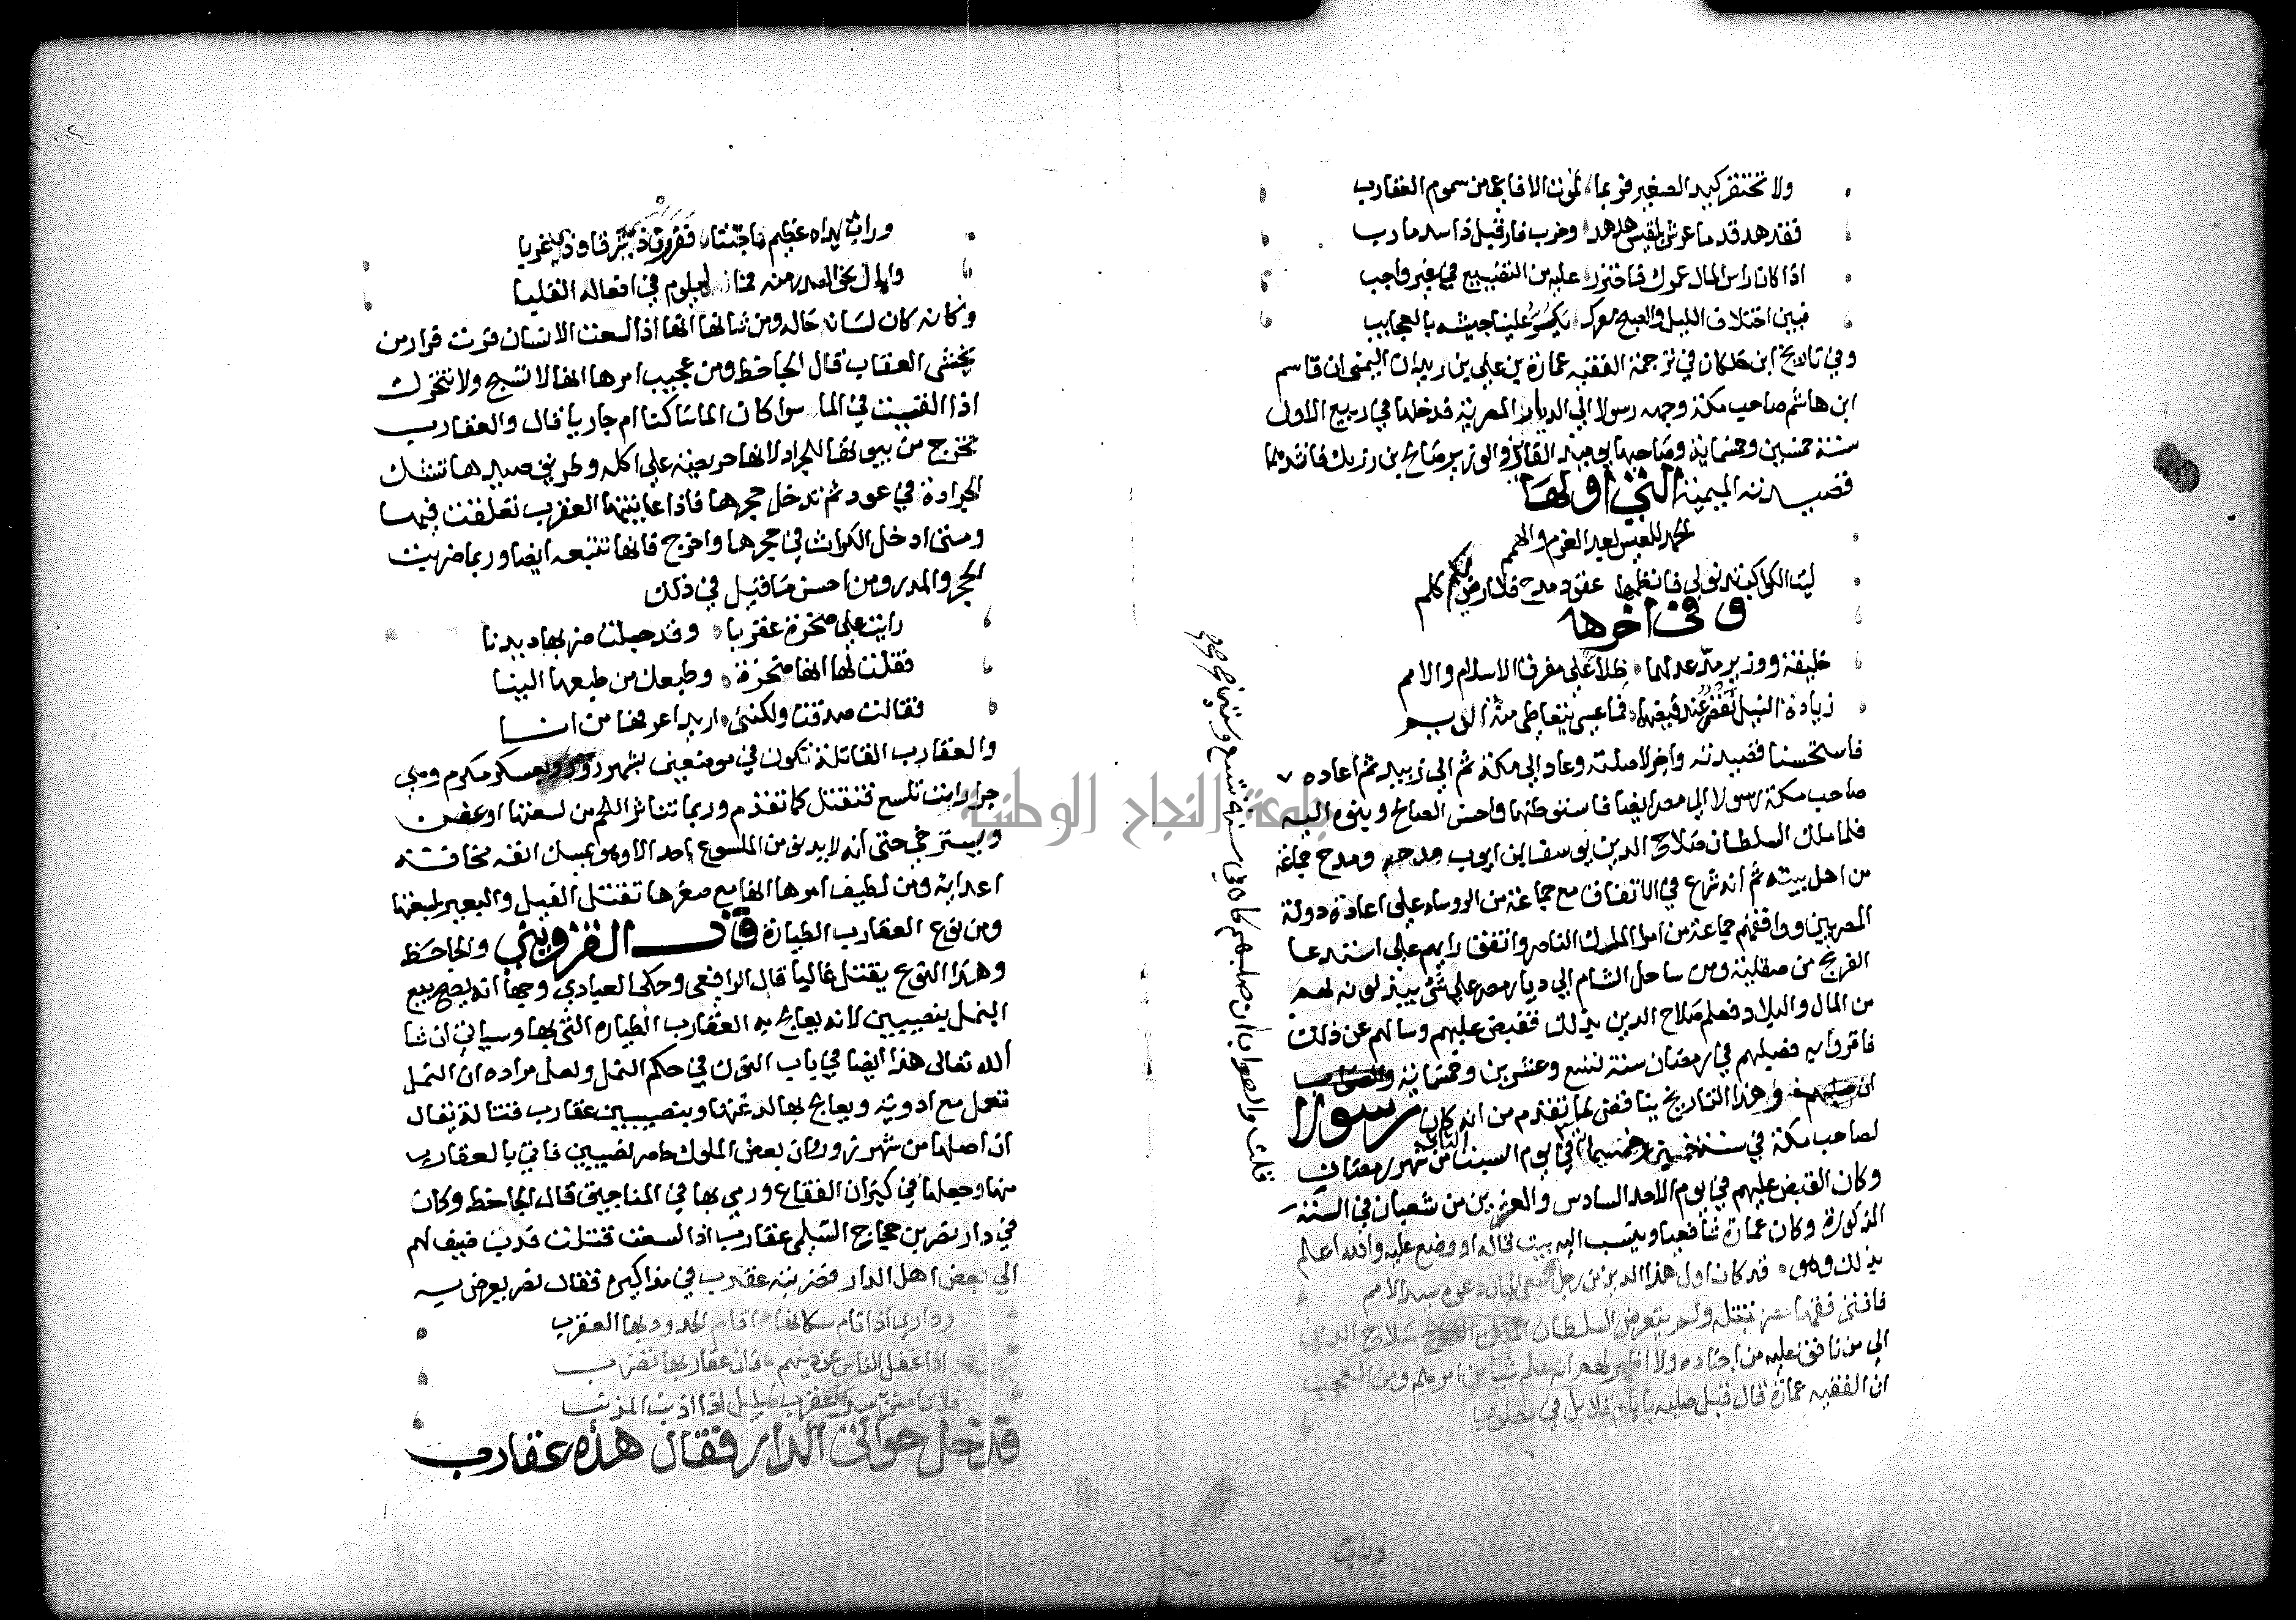 ولا تحتقر كيد الصغير فربما تموت الافاعي من سموم العقارب
فقد هد قدما عرش بلقيس هدهد وخرب فار قبل ذا سد مارب
اذا كان راس المال عمرك فاحترز عليه من التضييع في غير واجب
فبين اختلاف الليل والصبح معرك يكر علينا جيشه بالعجايب
وفي تاريخ ابن خلكان في ترجمة الفقيه عمارة بن علي بن زيدان اليمني ان قاسم
ابن هاشم صاحب مكة وجهه رسولا الي الديار المصرية فدخلها في ربيع الاول
سنة خمسين وخمسماية وصاحبها يوميذ الفايز والوزير صالح بن رزيك فانشدهما
قصيدته الميمية التي اولها
الحمد للعيس بعد العزم والهمم
ليت الكواكب تدنو لي فانظمها عقود مدح فلا ارضي لكم كلم
وفي اخرها
خليفة ووزير مد عدلهما ظلا علي مفرق الاسلام والامم
زيادة النيل نقص عند فيضهما فما عسي يتعاطي منة الديم
فاستحسنا قصيدته واجزلا صلته وعاد الي مكة ثم الي زبيد ثم اعاده
صاحب مكة رسولا الي مصر ايضا فاستوطنها واحسن الصالح وبنوه اليه
فلما ملك السلطان صلاح الدين يوسف ابن ايوب مدحه ومدح جماعة
من اهل بيته ثم انه شرع في الاتفاق مع جماعة من الروساء علي اعادة دولة
المصريين ووافقهم جماعة من امرا الملك الناصر واتفق رايهم علي استدعا
الفرنج من صقلية ومن ساحل الشام الي ديار مصر علي شي يبذلونه لهم
من المال والبلاد فعلم صلاح الدين بذلك فقبض عليهم وسالهم عن ذلك
فاقروا به فصلبهم في رمضان سنة تسع وعشرين وخمسماية والصواب
ان صلبهم وهذا التاريخ يناقض لما تقدم من انه كان رسولا
لصاحب مكة في سنة خمسين وخمسماية في يوم السبت الثاني من شهر رمضان
وكان القبض عليهم في يوم الاحد السادس والعشرين من شعبان في السنة
المذكورة وكان عمارة شافعيا وينسب اليه بيت قاله او وضع عليه والله اعلم
بذلك وهو قد كان اول هذا الدين من رجل سعي الي ان دعوه سيد الامم
فافتي فقها مصر بقتله ولم يتعرض السلطان الملك صلاح الدين
الي من نافق عليه من اجناده ولا اظهر لهم انه علم شيا من امرهم ومن العجب
ان الفقيه عمارة قال قبل صلبه بايام قلايل في مصلوب
ورات
قلت والصواب ان صلبهم كان في سنة تسع وستين
ورات يداه عظيم ما جنتا ففررن ذي شرقا وذي غربا
وامال نحو الصدر منه فما ليلوم في افعاله القلبا
وكانه كان لسان حاله ومن شانها انها اذا لسعت الانسان فرت فرار من
يخشي العقاب قال الجاحظ ومن عجيب امرها انها لا تسبح ولا تتحرك
اذا القيت في الما سوا كان الما ساكنا ام جاريا قال والعقارب
تخرج من بيوتها للجراد لانها حريصة علي اكله وطريق صيدها تشبك
الجرادة في عود ثم تدخل حجرها فاذا عاينتها العقرب تعلقت فيها
ومتي ادخل الكراث في حجرها واخرج فانها تتبعه ايضا وربما ضربت
الحجر والمدر ومن احسن ما قيل في ذلك
رايت علي صخرة عقربا وقد جعلت ضربها ديدنا
فقلت لها انها صخرة وطبعك من طبعها الينا
فقالت صدقت ولكنني اريد اعرفها من انا
والعقارب القاتلة تكون في موضعين بشهرزور وبعسكر مكرم وهي
جرارات تلسع فتقتل كما تقدم وربما تناثر اللحم من لسعتها او عفن
ويسترخي حتي انه لا يدنو من الملسوع احد الا وهو يمسك انفه مخافة
اعدايه ومن لطيف امرها انها مع صغرها تقتل الفيل والبعير بلسعتها
ومن نوع العقارب الطيارة قال القزويني والجاحظ
وهذا النوع يقتل غالبا قال الرافعي وحكي العبادي وجها انه يصح بيع
النمل بنصيبين لانه يعالج به العقارب الطيارة التي بها وسياتي ان شا
الله تعالي هذا ايضا في باب النون في حكم النمل ولعل مراده ان النمل
تعمل مع ادوية ويعالج بها لدغتها وبنصيبين عقارب قتالة يقال
ان اصلها من شهرزور وان بعض الملوك حاصر نصيبين فاتي بالعقارب
منها وجعلها في كيزان الفقاع ورمي بها في المناجيق قال الجاحظ وكان
في دار نصر بن حجاج السلمي عقارب اذا لسعت قتلت فدب ضيف لهم
الي بعض اهل الدار فضربته عقرب في مذاكيره فقال نصر يعرض به
وداري اذا نام سكانها اقام الحدود بها العقرب
اذا غفل الناس عن دينهم فان عقاربها تضرب
فلا تامنن سري عقرب بليل اذا اذنب المذنب
فدخل حوالي الدار فقال هذه عقارب